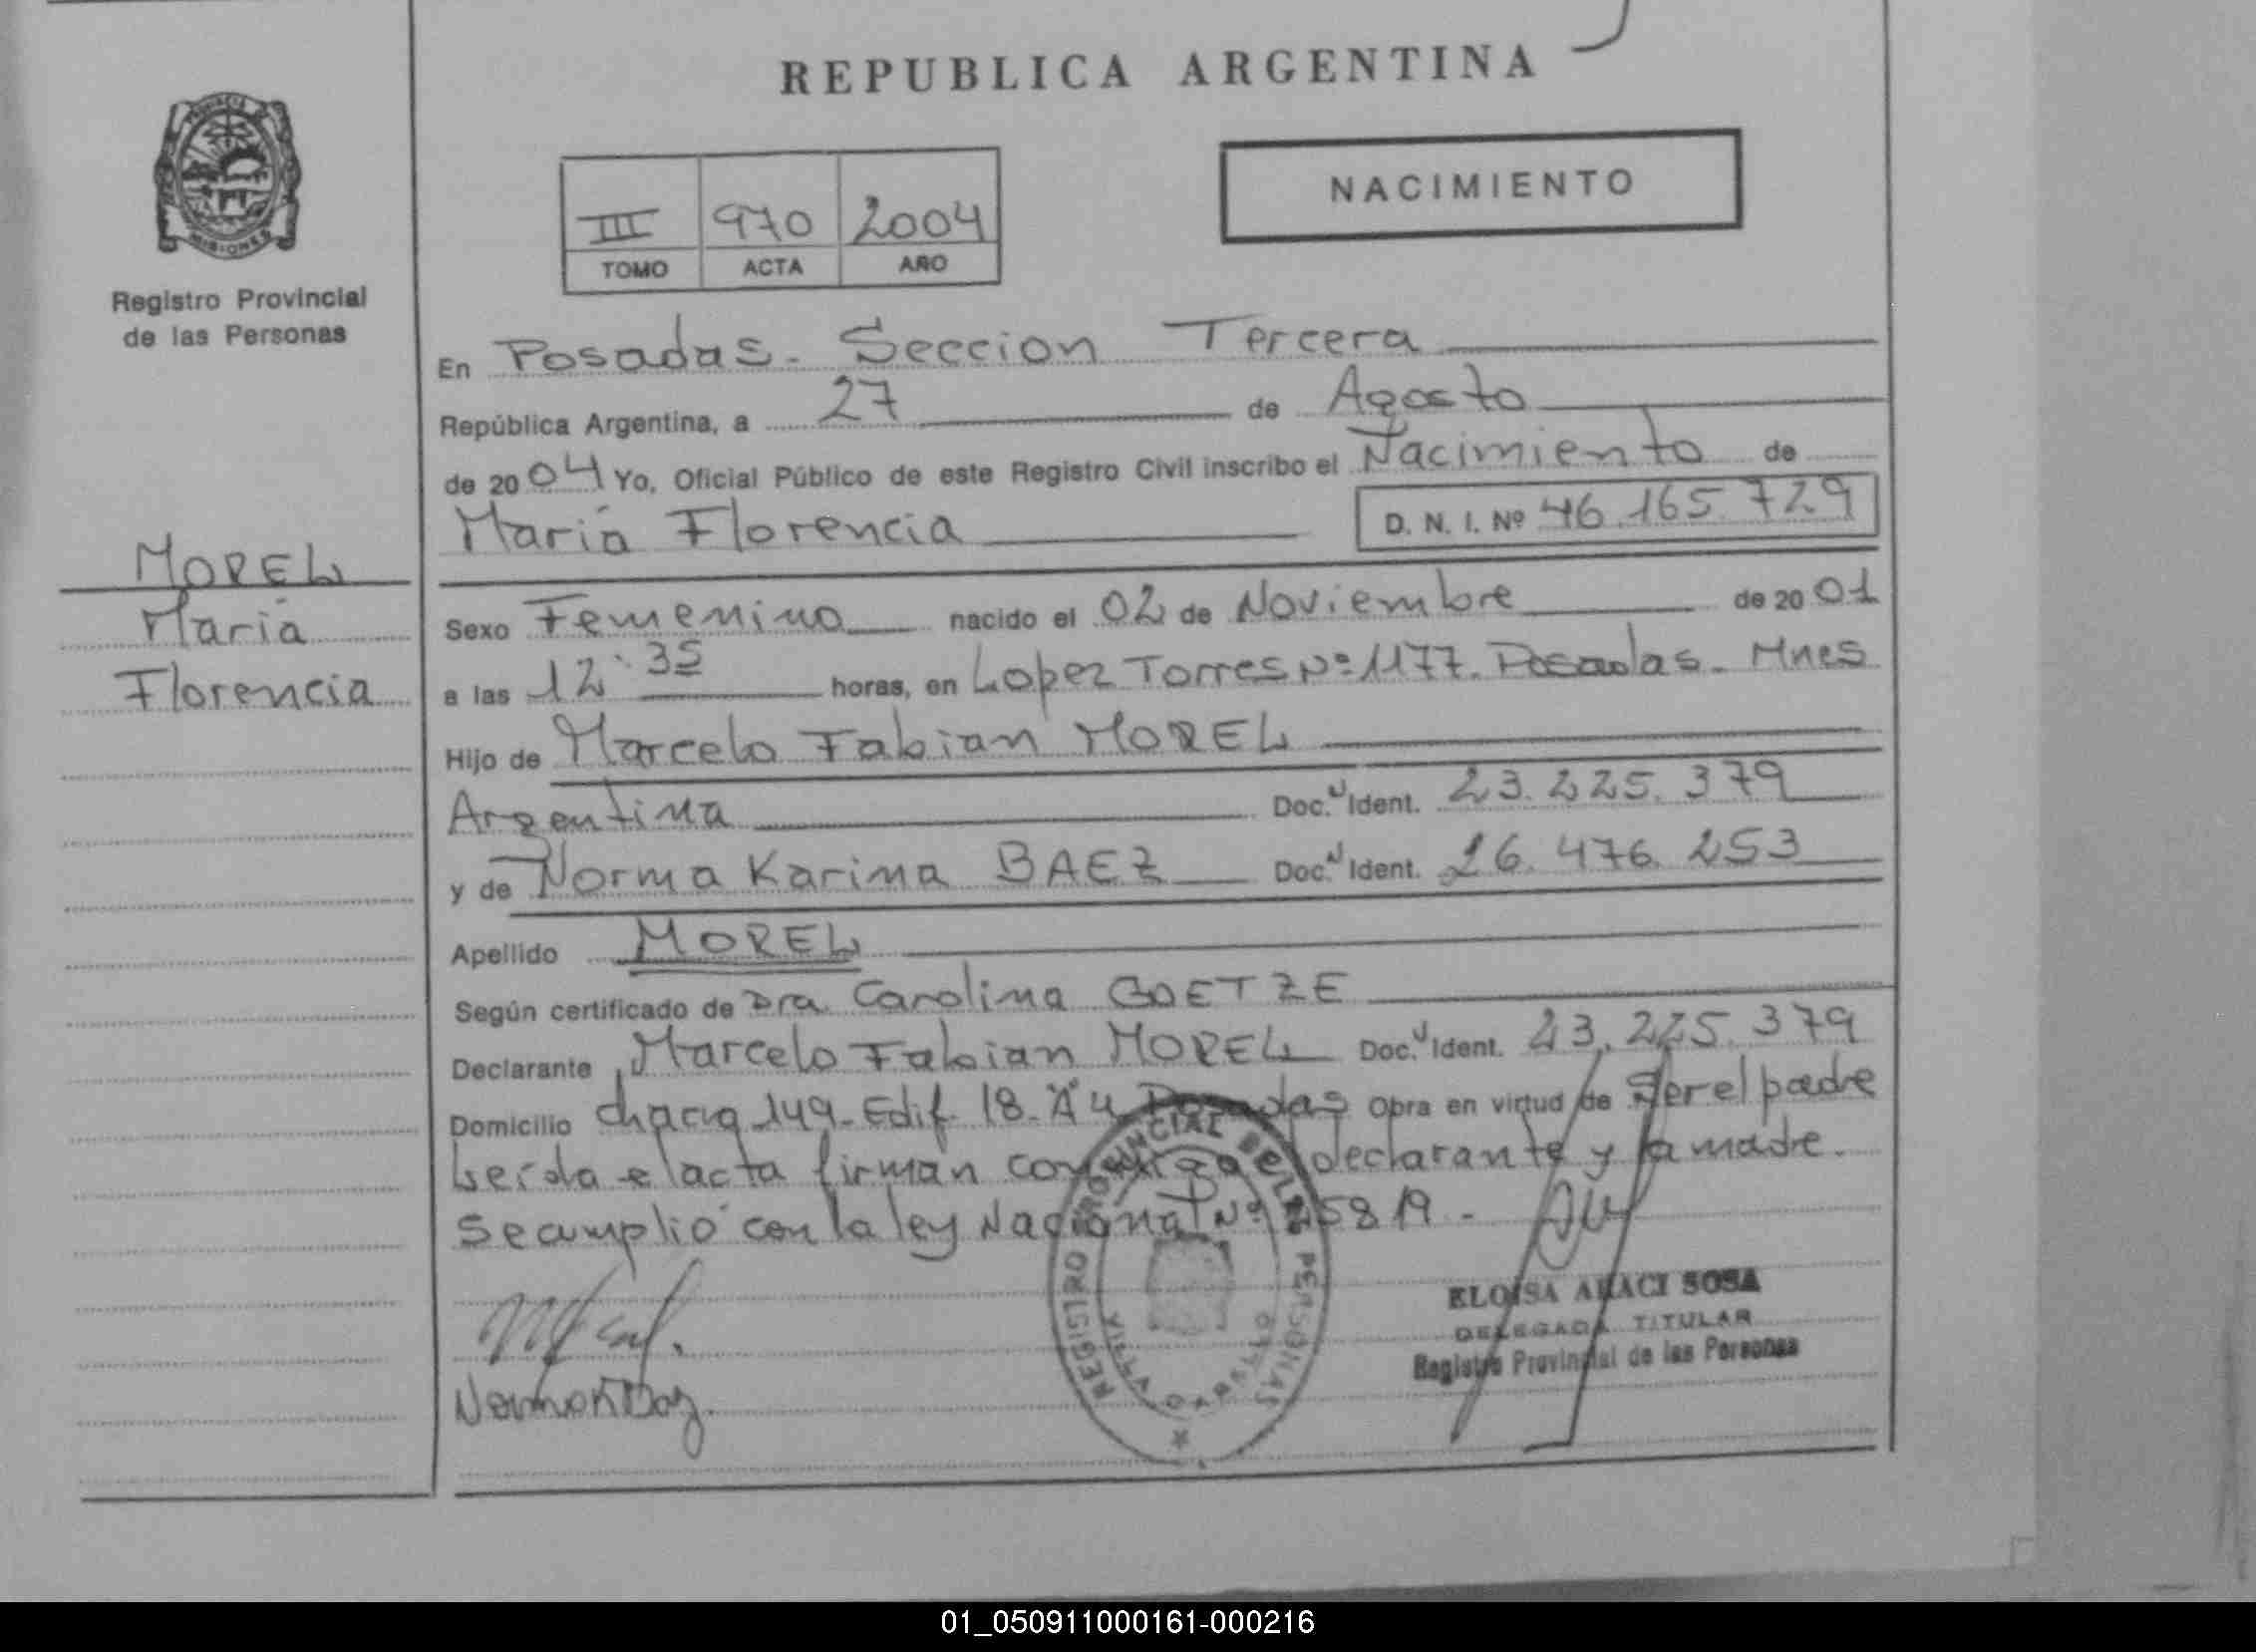 REPUBLICA ARGENTINA
PROVINCIA
MISIONES
Registro Provincial
de las Personas
III 970 2004
TOMO ACTA AÑO
NACIMIENTO
En Posadas. Seccion Tercera
República Argentina, a 27 de Agosto
de 2004 Yo, Oficial Público de este Registro Civil inscribo el Nacimiento de
María Florencia D. N. I. Nº 46.165.729
MOREL
María
Florencia
Sexo Femenino nacido el 02 de Noviembre de 2001
a las 12:35 horas, en Lopez Torres Nº 1177. Posadas. Mnes
Hijo de Marcelo Fabian MOREL
Argentina Doc. Ident. 23.225.379
y de Norma Karina BAEZ Doc. Ident. 26.476.253
Apellido MOREL
Según certificado de Dra Carolina GOETZE
Declarante Marcelo Fabian MOREL Doc. Ident. 23.225.379
Domicilio chacra 149. Edif. 18. "A" 4 Posadas Obra en virtud de Ser el padre
Leída el acta firman conmigo el declarante y la madre.
Se cumplió con la ley Nacional Nº 25819.-
REGISTRO PROVINCIAL DE LAS PERSONAS
ELOISA ARACI SOSA
DELEGADA TITULAR
Registro Provincial de las Personas
01_050911000161-000216